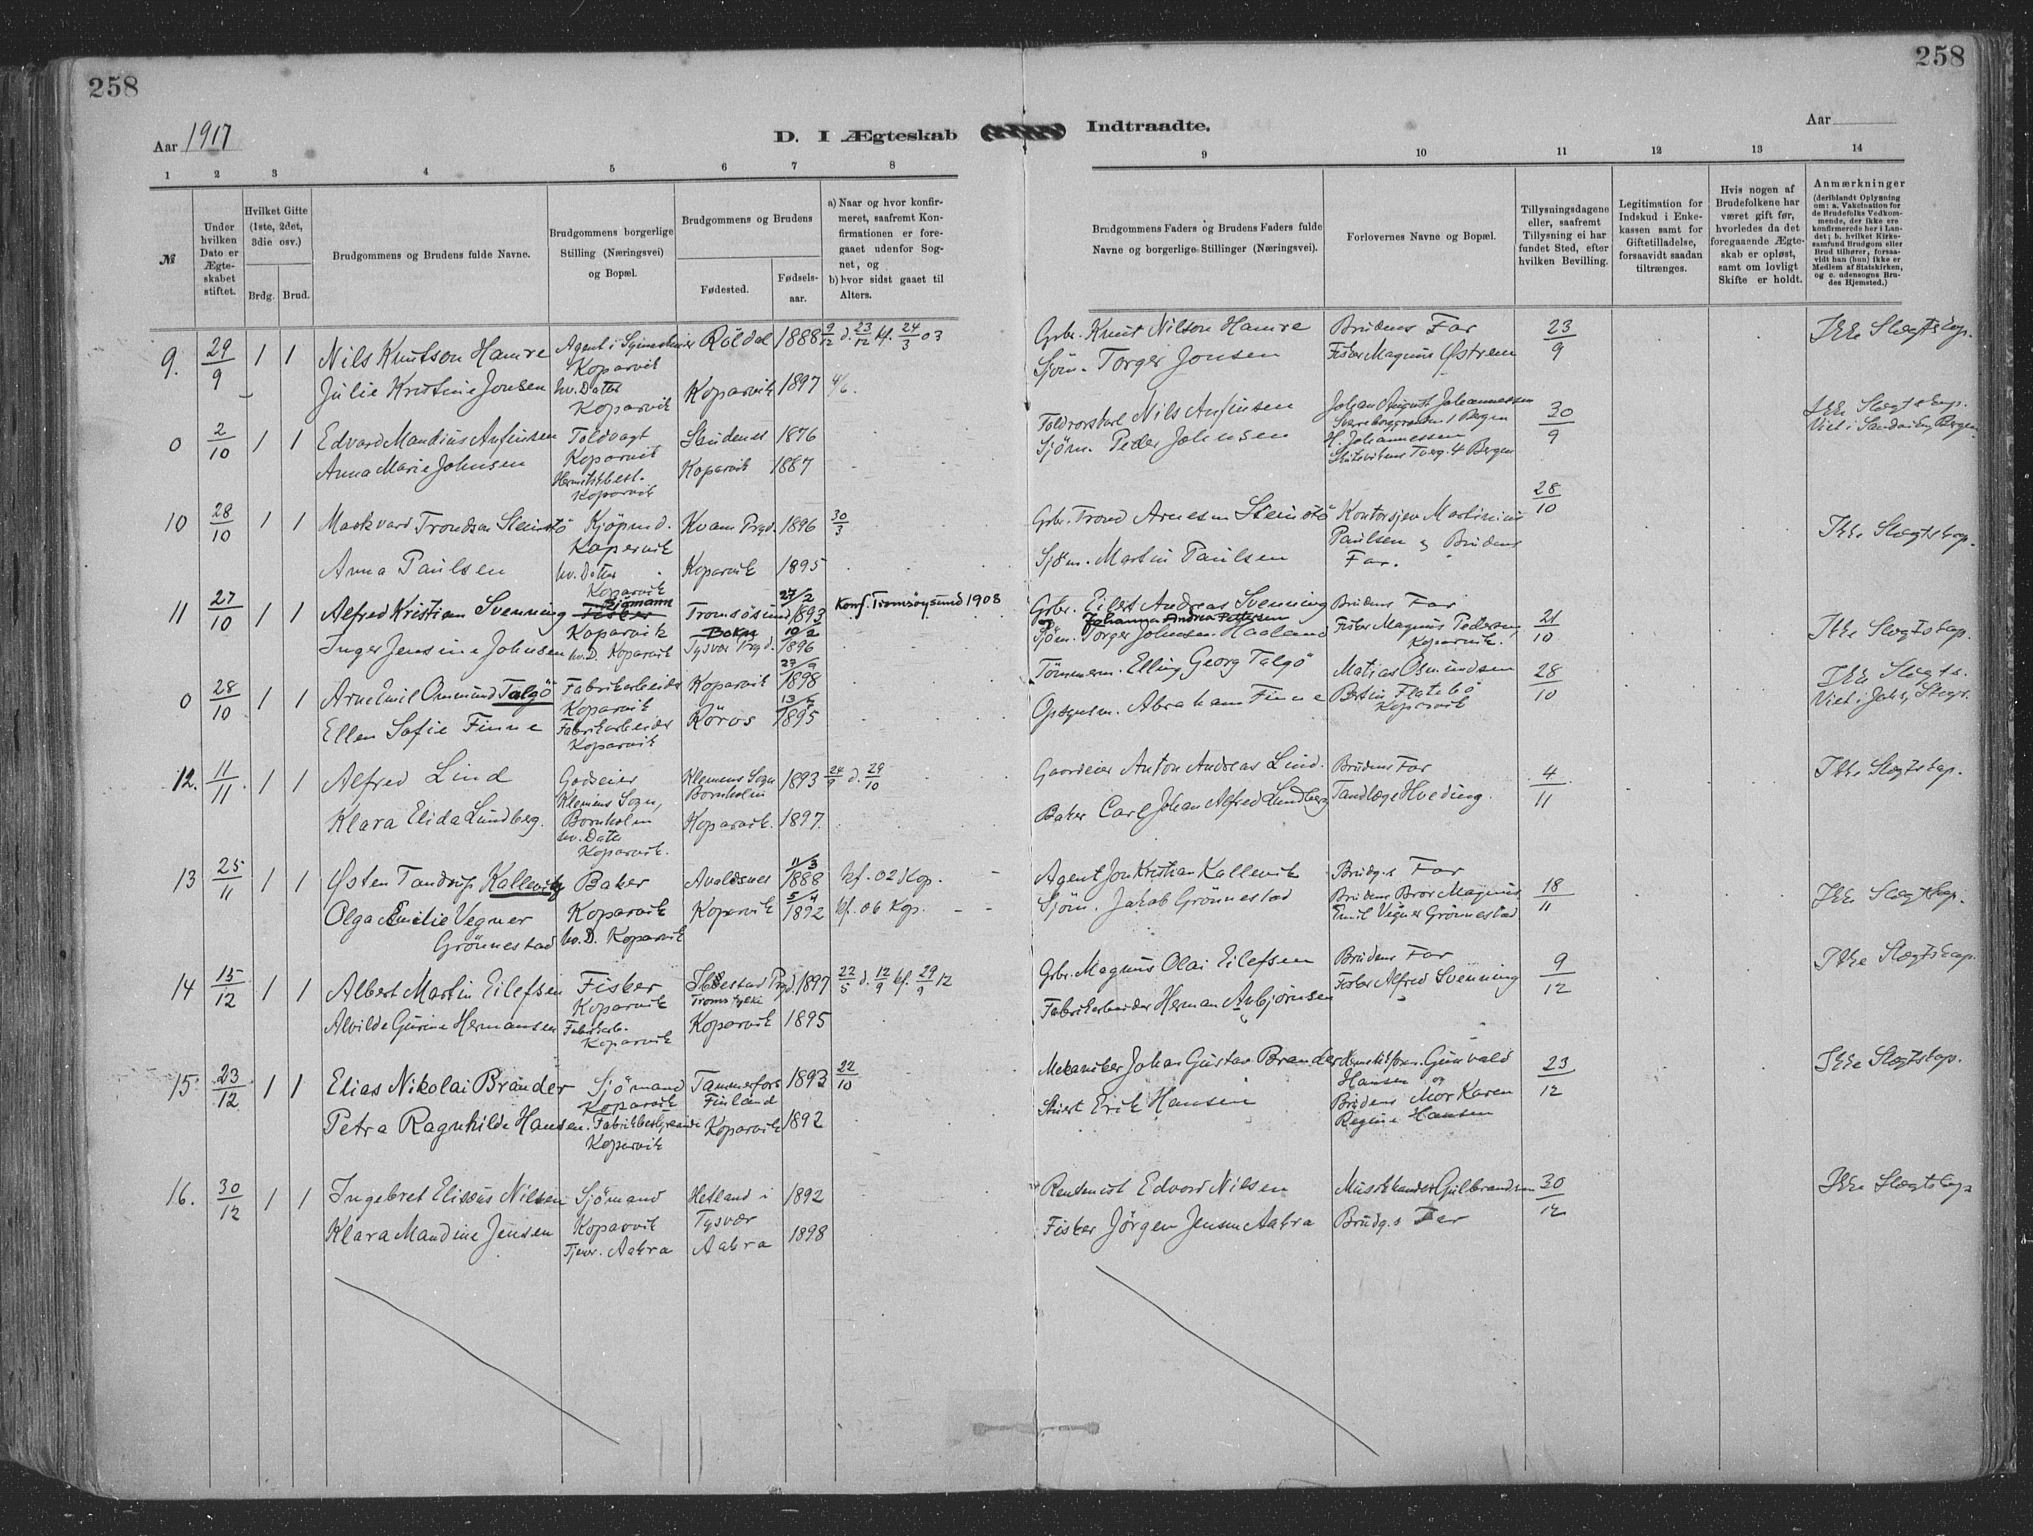 258
258
Aar 1917
D. I Ægteskab
Indtraadte.
Aar
1 2 3 4 5 6 7 8
9 10 11 12 13 14
№
Under hvilken Dato er Ægteskabet stiftet.
Hvilket Gifte (1ste, 2det, 3die osv.)
Brdg. Brud.
Brudgommens og Brudens fulde Navne.
Brudgommens borgerlige Stilling (Næringsvei) og Bopæl.
Brudgommens og Brudens
Fødested.
Fødsels-aar.
a) Naar og hvor konfirmeret, saafremt Konfirmationen er foregaaet udenfor Sognet, og
b) hvor sidst gaaet til Alters.
Brudgommens Faders og Brudens Faders fulde Navne og borgerlige Stillinger (Næringsvei).
Forlovernes Navne og Bopæl.
Tillysningsdagene eller, saafremt Tillysning ei har fundet Sted, efter hvilken Bevilling.
Legitimation for Indskud i Enkekassen samt for Giftetilladelse, forsaavidt saadan tiltrænges.
Hvis nogen af Brudefolkene har været gift før, hvorledes da det foregaaende Ægteskab er opløst, samt om lovligt Skifte er holdt.
Anmærkninger
(deriblandt Oplysning om: a. Vakcination for de Brudefolks Vedkommende, der ikke ere konfirmerede her i Landet; b. hvilket Kirkesamfund Brudgom eller Brud tilhører, forsaavidt han (hun) ikke er Medlem af Statskirken, og c. udensogns Brudes Hjemsted.)
9. 29/9 1 1 Nils Knutson Hamre Koparvik Röldal 1888 9/12 d. 23/12 kf. 24/3 03 Grbr. Knut Nilson Hamre Brudens Far 23/9 Ikke Slægtskap.
Julie Kristine Jonsen hv. Datter Koparvik Koparvik 1897 4/6. Sjøm. Torger Jonsen Fisker Magnus Østrem
0 2/10 1 1 Edvard Mandius Anfinsen Toldvagt Koparvik Skudenes 1876 Nils Anfinsen Johan August Johannessen Bergen 30/9 Ikke Slægtskap.
Anna Marie Johnsen Koparvik Koparvik 1887 Sjøm. Peder Johnsen H. Johannessen 4 Bergen Viet i Sandviken, Bergen
10 28/10 1 1 Markvard Trondsen Steinstö Kjøpmd. Kopervik Kvam Prgd. 1896 30/3 Grbr. Trond Arnesen Steinstö Kontorsjev Martinius Paulsen og Brudens Far. 28/10 Ikke Slægtskap.
Anna Paulsen hv. Datter Koparvik Koparvik 1895 Sjøm. Martin Paulsen
11 27/10 1 1 Alfred Kristian Svenning Sjømann Fisker Koparvik Tromsøsund 27/2 1893 Konf. Tromsøysund 1908 Grbr. Eilert Andreas Svenning og Johanna Andrea Pettersen Brudens Far 21/10 Ikke Slægtskap.
Inger Jensine Johnsen hv. D. Koparvik Bokn Tysvær Prgd. 10/2 1896 Sjøm. Torger Johnsen Haaland Fisker Magnus Pedersen, Koparvik.
0 28/10 1 1 Arne Emil Ommund Talgö Fabrikarbeider Koparvik Koparvik 27/9 1898 Tømmerm. Elling Georg Talgö Matias Osmundsen 28/10 Ikke Slægts.
Ellen Sofie Finne Fabrikarbeider Koparvik Röros 1895 Opsynsm. Abraham Finne Bertin Flatebø Koparvik
12. 11/11 1 1 Alfred Lind Godseier Klemens Sogn, Bornholm Klemens Sogn Bornholm 1893 24/9 d. 29/10 Gaardeier Anton Andreas Lind. Brudens Far 4/11 Ikke Slægtskap.
Klara Elida Lundberg. hv. Datter Koparvik. Koparvik. 1897. Baker Carl Johan Alfred Lundberg Tandlæge Hveding.
13 25/11 1 1 Østen Tandrup Kallevig Baker Koparvik Avaldsnes 11/3 1888 kf. 02 Kop. Agent Jon Kristian Kallevik Brudg.s Far 18/11 Ikke Slægtskap.
Olga Emilie Vegner Grönnestad hv. D. Koparvik Koparvik 5/4 1892 kf. 06 Kop. Sjøm. Jakob Grönnestad Brudens Bror Magnus Emil Vegner Grönnestad
14 15/12 1 1 Albert Martin Eilefsen Fisker Koparvik Prgd. Troms fylki 1897 22/5 d. 12/9 kf. 29/9 12 Grbr. Magnus Olai Eilefsen Brudens Far 9/12 Ikke Slægtskap.
Alvilde Gurine Hermansen Fabrikarb. Koparvik Koparvik 1895 Fabrikarbeider Herman Asbjørnsen Fisker Alfred Svenning
15. 23/12 1 1 Elias Nikolai Brander Sjömand Koparvik Tammerfors Finland 1893 22/10 Mekaniker Johan Gustav Brander Gunvald Hansen og 23/12 Ikke Slægtskap.
Petra Ragnhilde Hansen. Fabrikbestyrerinde Koparvik Koparvik 1892 Stuert Erik Hansen Brudens Mor Karen Regine Hansen
16. 30/12 1 1 Ingebret Eliseus Nilsen Sjömand Koparvik Hetland i Tysvær 1892 Rentenist Edvard Nilsen Musikhandler Gulbrandsen 30/12 Ikke Slægtskap
Klara Mandine Jensen Tjen. Aakra Aakra 1898 Fisker Jörgen Jensen Aakra Brudg.s Far